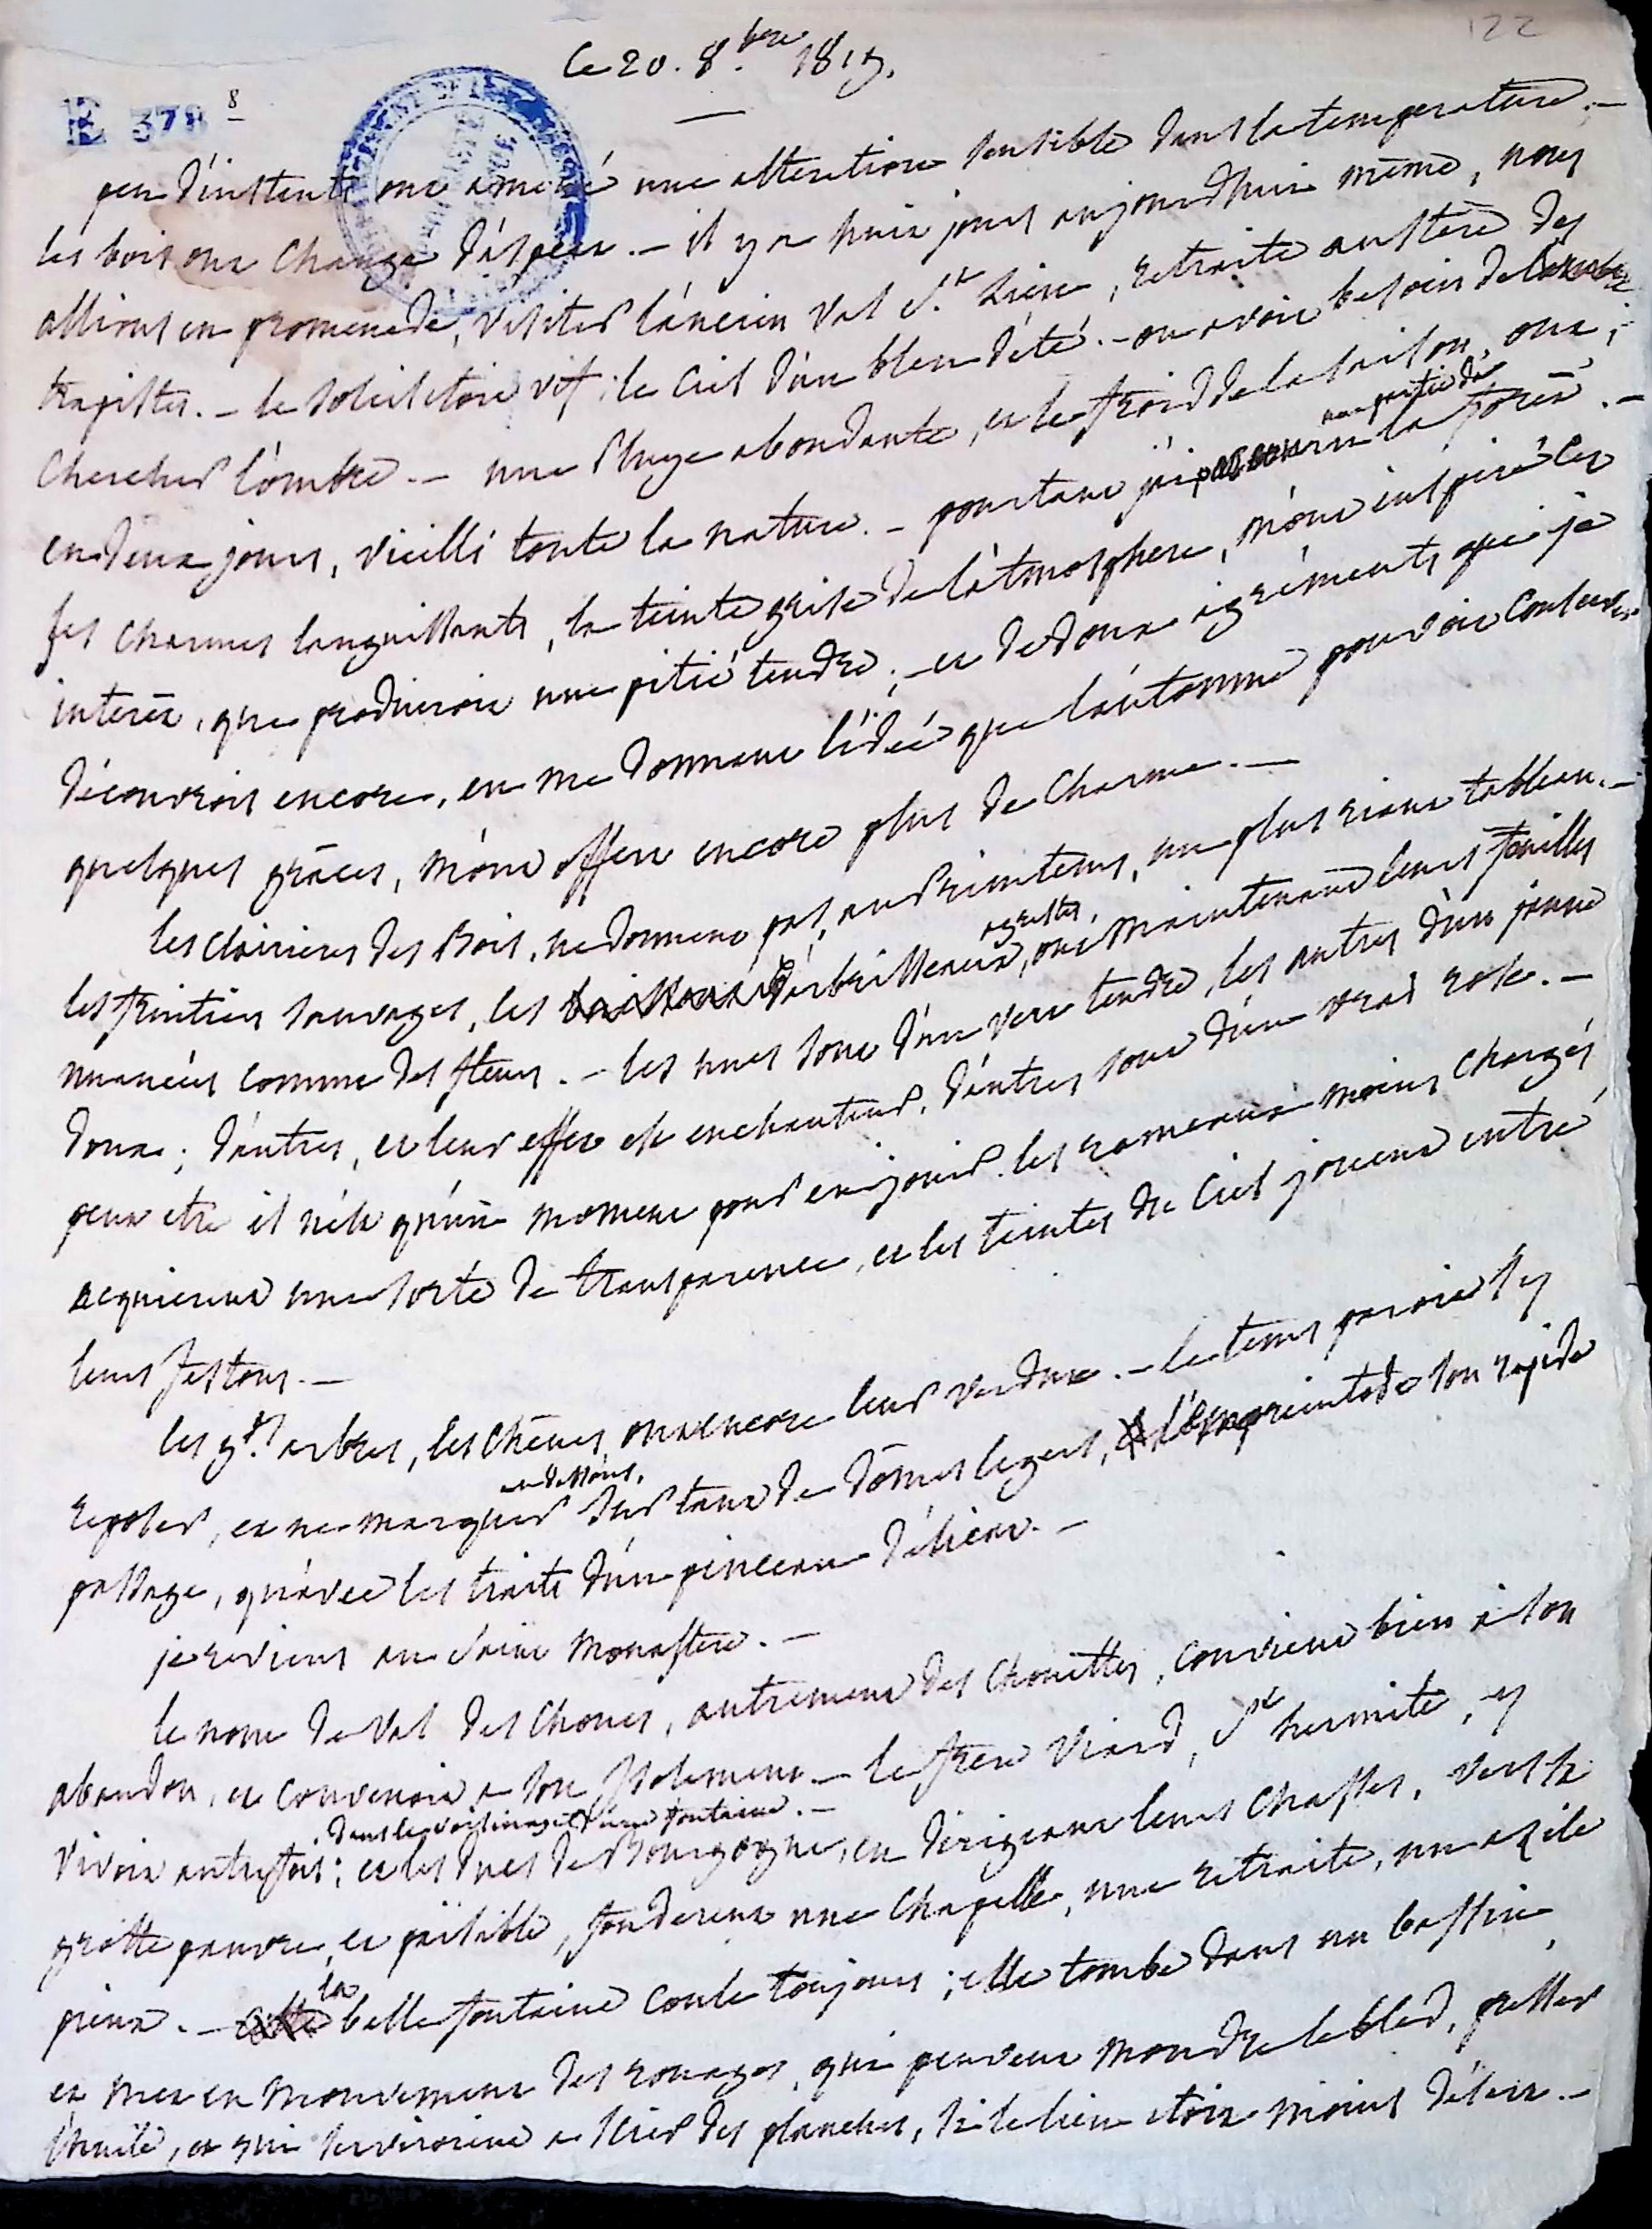 122
Ce 20. 8.bre 1815.
E 378 8
peu d'instents ont amené une alteration sensible dans la temperature. —
les bois ont changé d'aspect. — il y a huit jours aujourdhui même, nous
allions en promenade, visiter l'ancien val St Lieu, retraite austère des
trapistes. — le soleil étoit vif; le ciel d'un bleu d'été. — on avoit besoin de
chercher l'ombre. — une pluye abondante, et le froid de la saison, ont,
en deux jours, vieilli toute la nature. — pourtant j'ai parcouru une partie de la forêt. —
ses charmes languissants, la teinte grise de l'atmosphere, m'ont inspiré cet
interêt, que produiroit une pitié tendre; — et de doux agréments que je
découvrois encore, en me donnant l'idée que l'automne pouvoit conserver
quelques grâces, m'ont offert encore plus de charme. —
les clairieres des Bois, ne donnent pas, au Printems, un plus riant tableau. —
les fruitiers sauvages, les arbrisseaux agrestes, ont maintenant leurs feuilles
nuancées comme des fleurs. — les unes sont d'un vert tendre, les autres d'un jaune
doux; d'autres, et leur effet est enchanteur, d'autres sont d'un vrai rose. —
peut etre il n'est qu'un moment pour en jouir. les rameaux moins chargés
acquierent une sorte de transparence, et les teintes du Ciel jouent entre
leurs festons. —
les gds arbres, les chênes, ont encore leur verdure. — le tems paroit s'y
reposer, et ne marquer au dessous, sur tant de dômes legers, l'empreinte de son rapide
passage, qu'avec les traits d'un pinceau délicat. —
je reviens au Saint Monastere. —
le nom de Val des Choues, autrement des Chouettes, convient bien à son
abandon, et convenoit a son isolement. — le frere Viard, St hermite, y
vivoit autrefois, dans le voisinage d'une fontaine. — et les Ducs de Bourgogne, en dirigeant leurs chasses, vers sa
grotte pauvre, et paisible, fonderent une chapelle, une retraite, un azile
pieux. — la belle fontaine coule toujours; elle tombe dans un bassin,
et met en mouvement des rouages, qui peuvent moudre le bled, presser
l'huile, et qui serviroient a scier des planches, si le lieu etoit moins désert. —